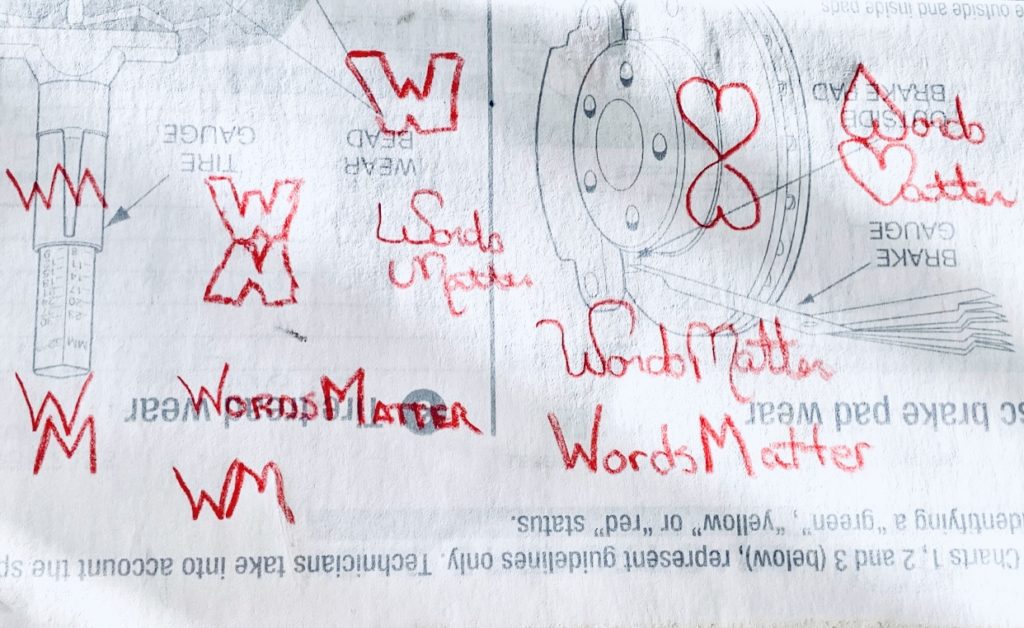 W
Words
Matter
WM
W
Words
Matter
WordsMatter
WM
WordsMatter
WM
WordsMatter
Charts 1, 2 and 3 (below), represent guidelines only. Technicians take into account the sp
dentifying a "green", "yellow" or "red" status.
Tire tread wear
sc brake pad wear
TIRE
GAUGE
WEAR
BRAKE
GAUGE
OUTSIDE
BRAKE PAD
e outside and inside pads